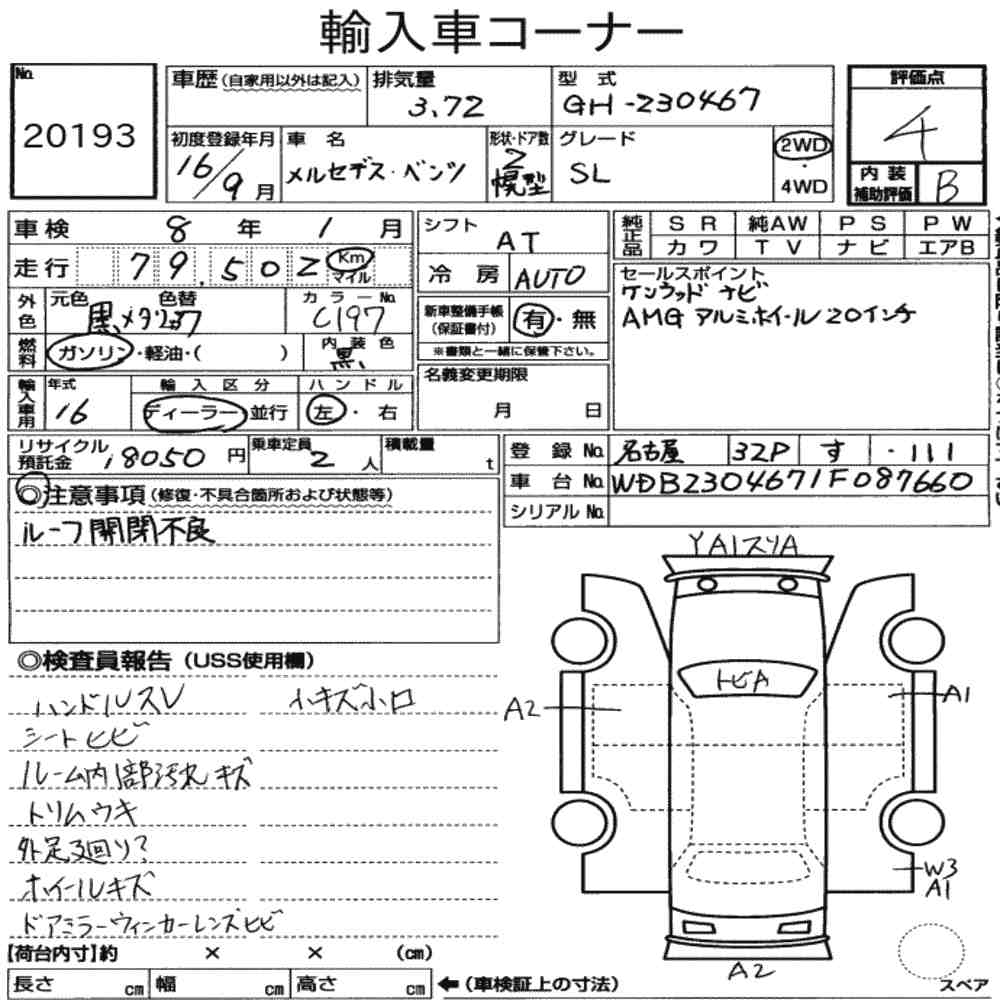 輸入車コーナー
No. 20193
車歴(自家用以外は記入) 排気量 3.72 型式 GH-230467 評価点 4
初度登録年月 16/9月 車名 メルセデス・ベンツ 形状・ドア数 2 幌型 グレード SL 2WD・4WD 内装補助評価 B
車検 8年 1月
走行 79,502 Km マイル
シフト AT
冷房 AUTO
純正品 SR 純AW PS PW
カワ TV ナビ エアB
外色 元色 黒メタリック 色替 カラーNo. C197
燃料 ガソリン・軽油・( ) 内装色 黒
新車整備手帳(保証書付) 有・無
※書類と一緒に保管下さい。
セールスポイント
ケンウッド ナビ
AMG アルミホイール 20インチ
輸入車用 年式 16 輸入区分 ディーラー 並行 ハンドル 左・右
名義変更期限
月 日
リサイクル預託金 18050円 乗車定員 2人 積載量 t
登録No. 名古屋 32P す ・111
車台No. WDB2304671F087660
シリアルNo.
◎注意事項(修復・不具合箇所および状態等)
ルーフ開閉不良
◎検査員報告(USS使用欄)
ハンドルスレ 小キズ小凹
シートヒビ
ルーム内部汚れキズ
トリムウキ
外足廻り?
ホイールキズ
ドアミラーウィンカーレンズヒビ
YA1スリA
トビA
A2
A1
W3
A1
A2
スペア
【荷台内寸】約 × × (cm)
長さ cm 幅 cm 高さ cm ←(車検証上の寸法)